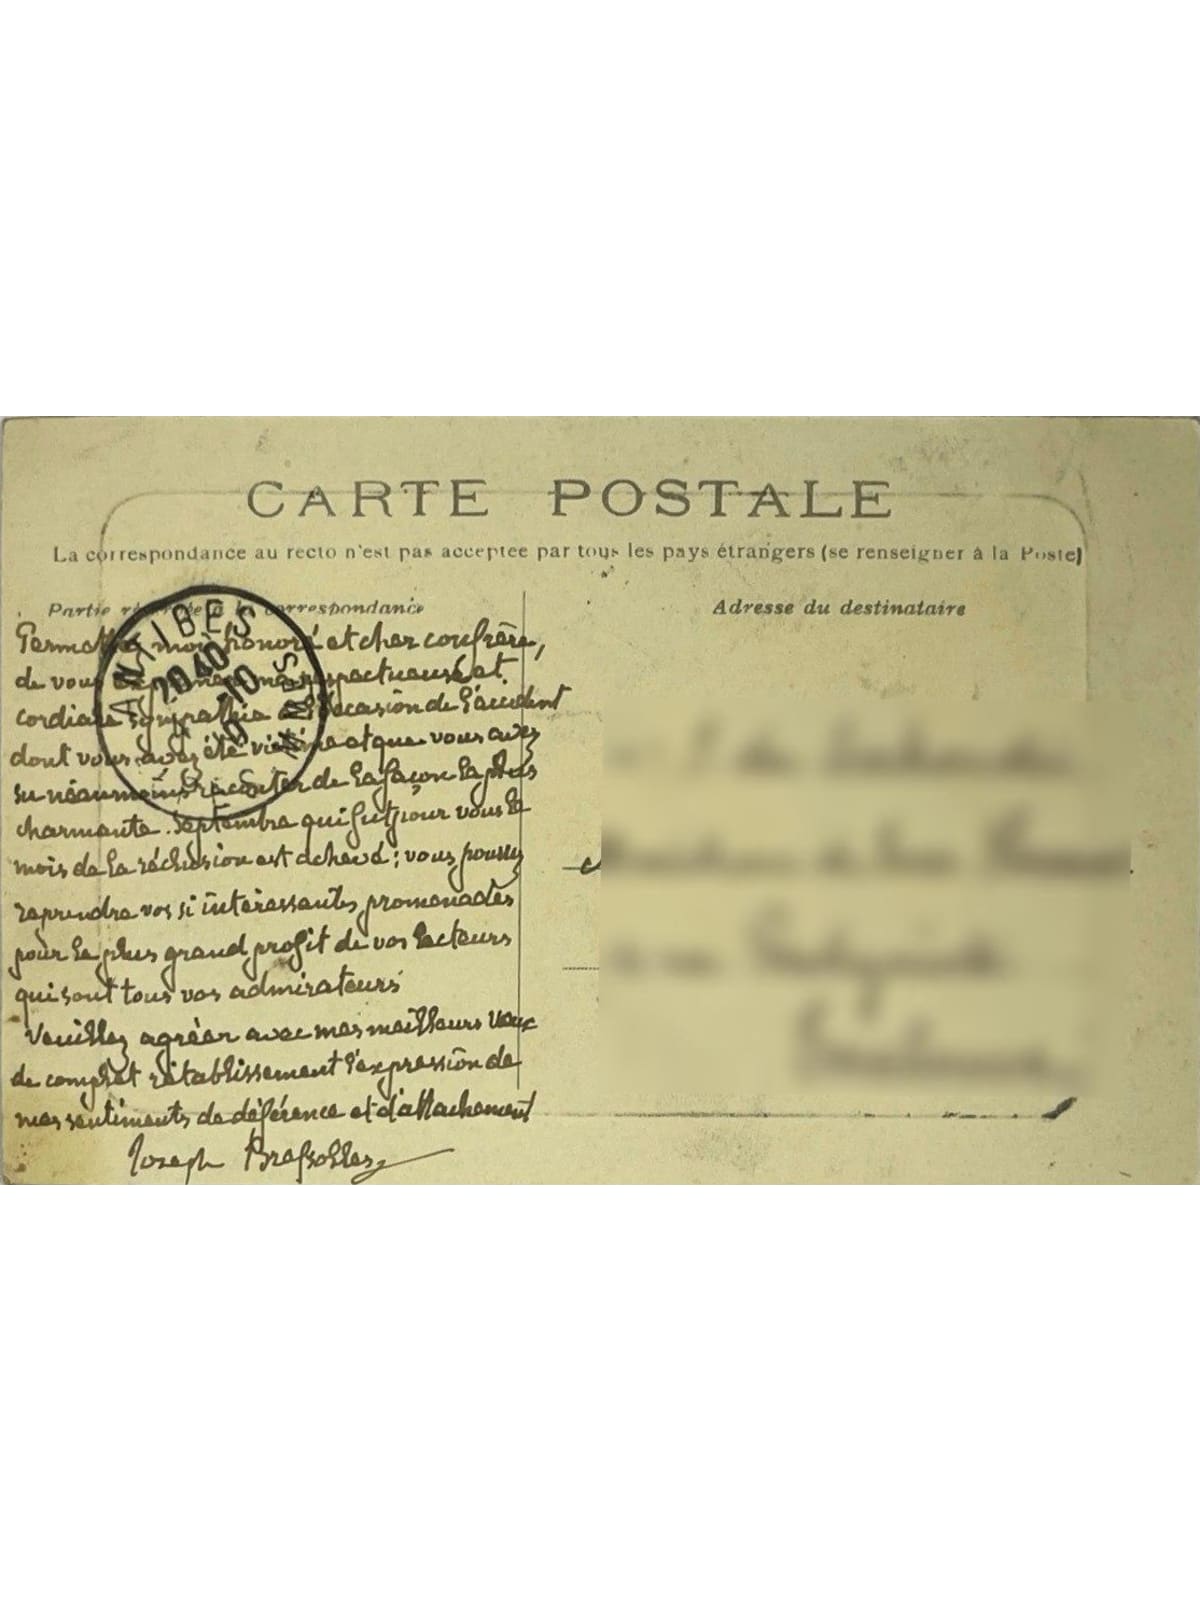 CARTE POSTALE
La correspondance au recto n'est pas acceptee par tous les pays étrangers (se renseigner à la Poste)
Partie réservée à la correspondance
Adresse du destinataire
Permettez moi, honoré et cher confrère,
de vous exprimer ma respectueuse et
cordiale sympathie à l'occasion de l'accident
dont vous avez été victime et que vous avez
su néanmoins raconter de la façon la plus
charmante. Septembre qui fut pour vous le
mois de la réclusion est achevé ; vous pouvez
reprendre vos si intéressantes promenades
pour le plus grand profit de vos lecteurs
qui sont tous vos admirateurs
Veuillez agréer avec mes meilleurs vœux
de complet rétablissement l'expression de
mes sentiments de déférence et d'attachement
Joseph
ANTIBES
20 40